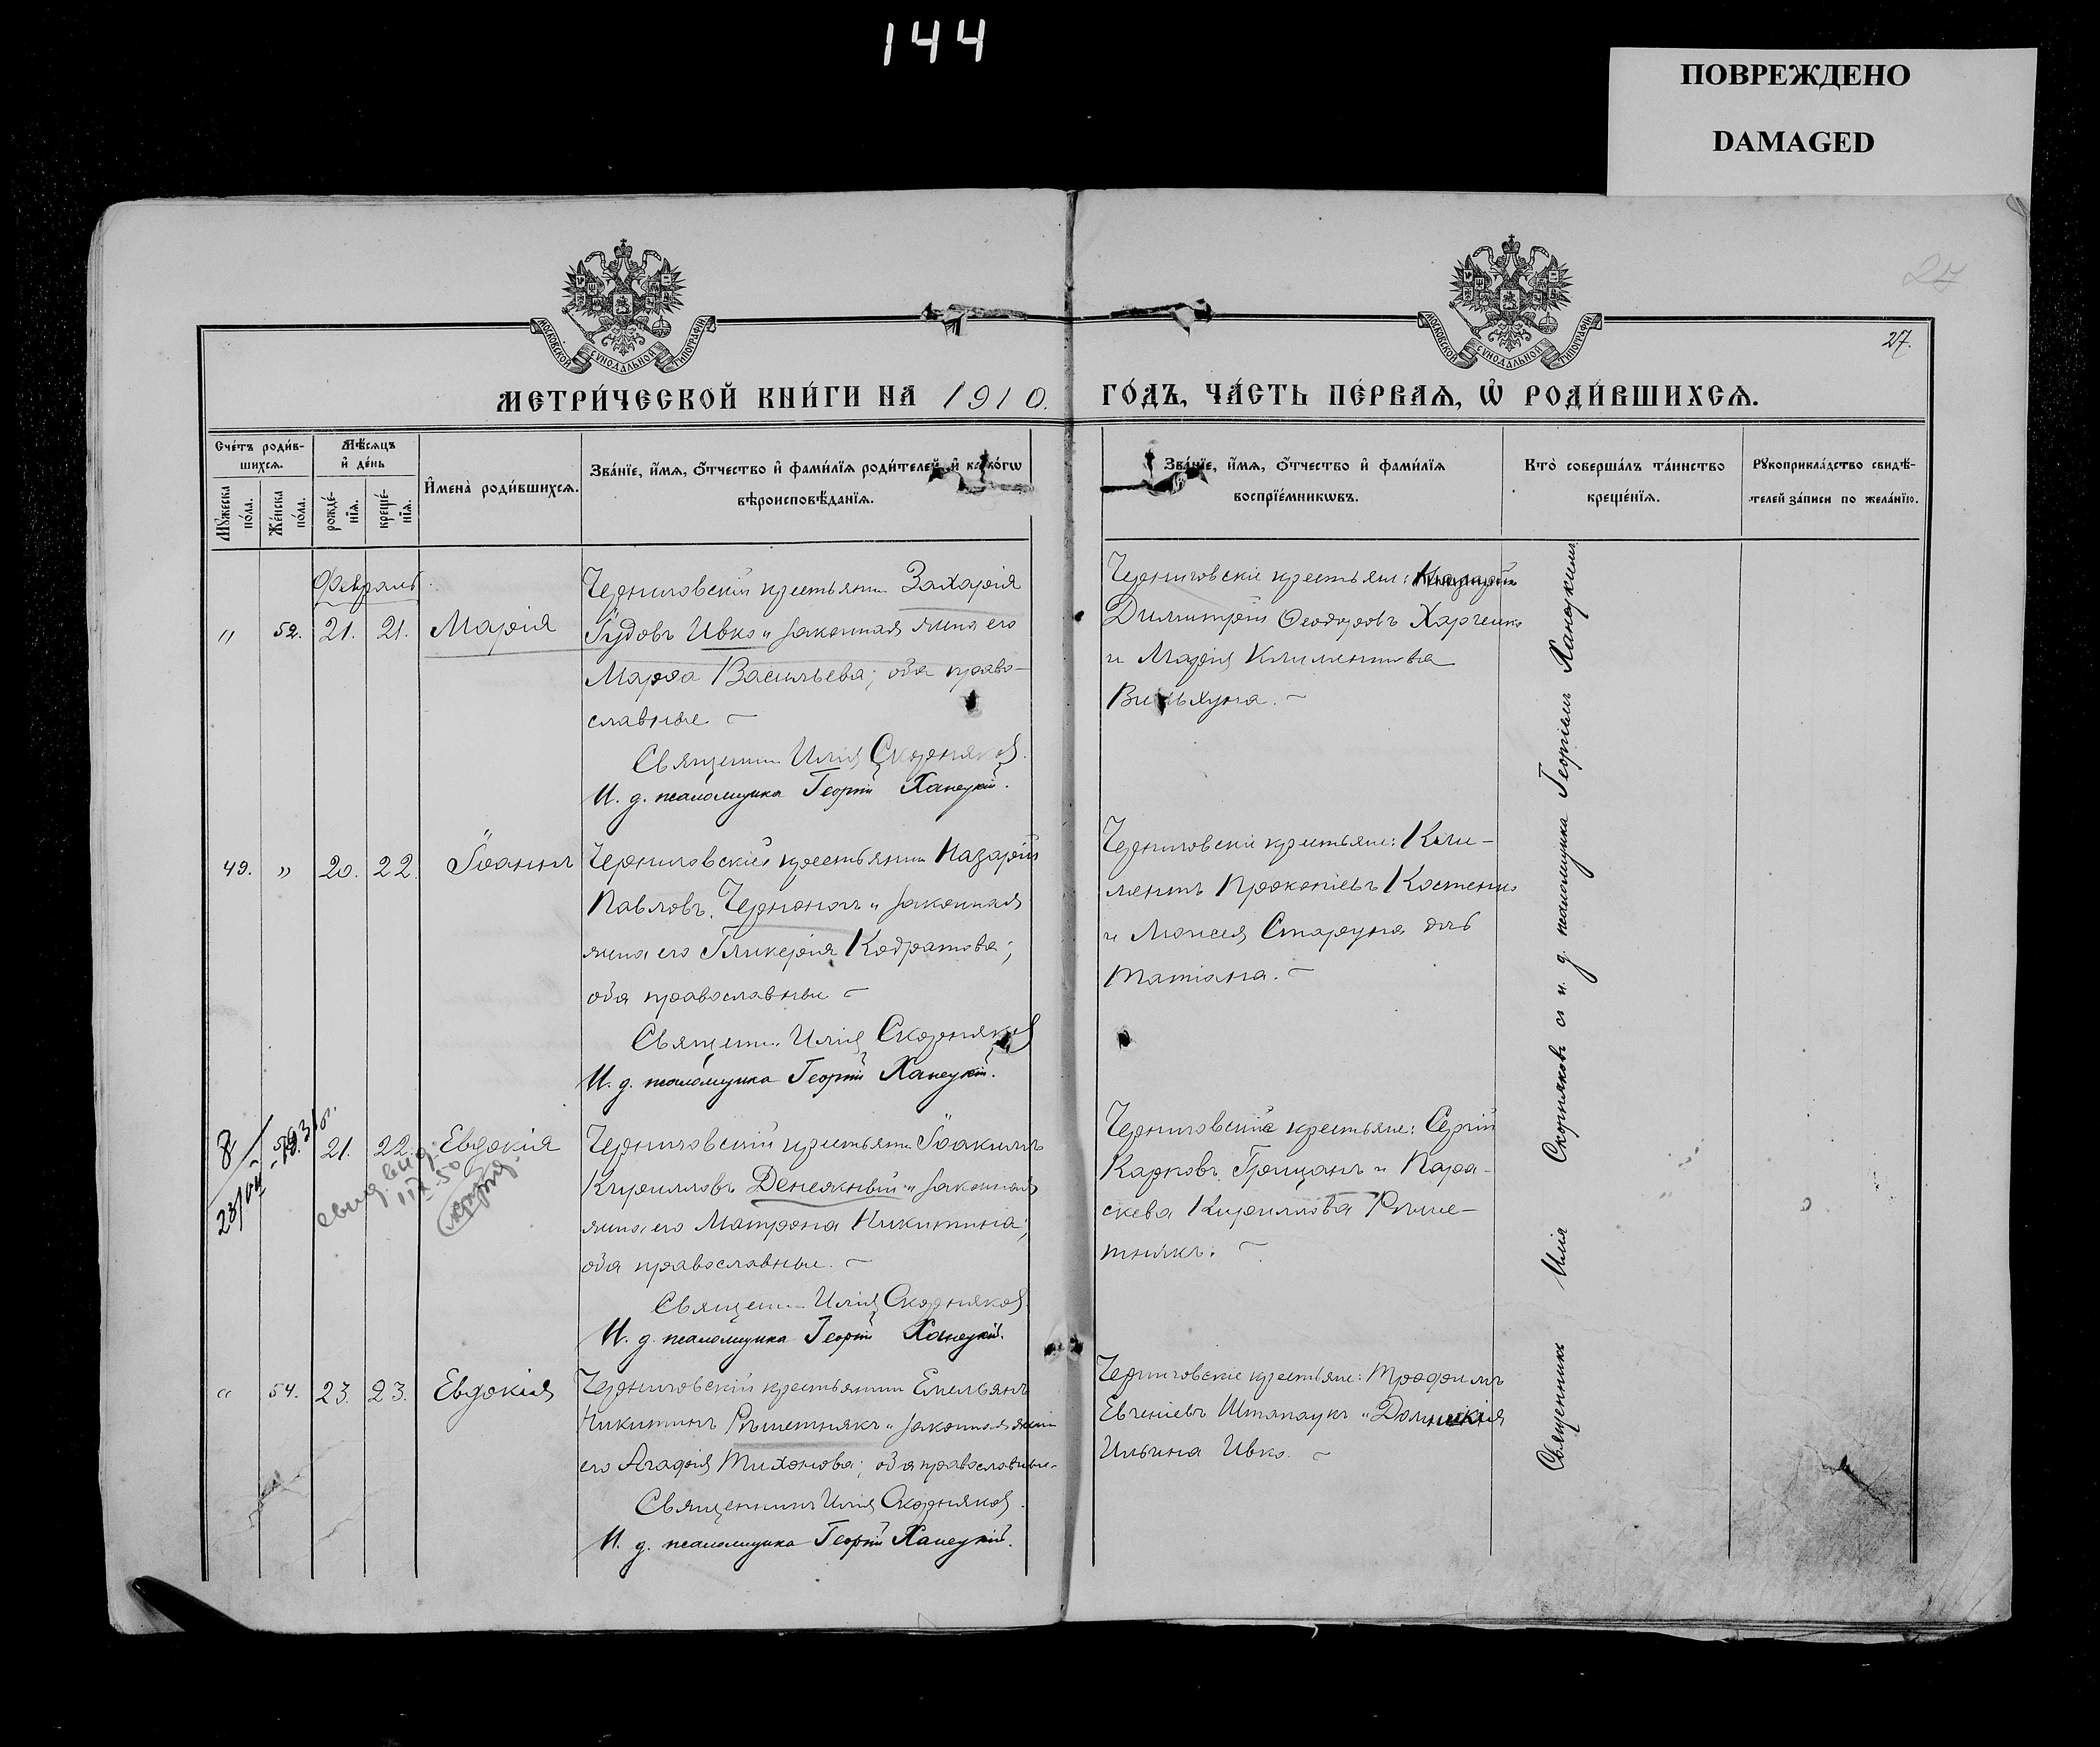 144
ПОВРЕЖДЕНО
DAMAGED
27
27.
МОСКОВСКОЙ СѴНОДАЛЬНОЙ ТИПОГРАФІИ
МОСКОВСКОЙ СѴНОДАЛЬНОЙ ТИПОГРАФІИ
МЕТРИ́ЧЕСКОЙ КНИ́ГИ НА 1910. ГО́ДЪ, ЧА́СТЬ ПЕ́РВАѦ, Ѡ҆ РОДИ́ВШИХСѦ.
Сче́тъ роди́в-
шихсѧ.
Мꙋжеска по́ла.
Же́нска по́ла.
Мѣ́сѧцъ
и҆ де́нь
рожде́-
нїѧ.
креще́-
нїѧ.
И҆мена̀ роди́вшихсѧ.
Зва́нїе, и҆́мѧ, ѻ҆́тчество и҆ фами́лїѧ роди́телей, и҆ како́гѡ
вѣроисповѣ́данїѧ.
Зва́нїе, и҆́мѧ, ѻ҆́тчество и҆ фами́лїѧ
воспрїе́мникѡвъ.
Кто̀ соверша́лъ та́инство
креще́нїѧ.
Рꙋкоприкла́дство свидѣ́-
телей за́писи по жела́нїю.
Февраль.
" 52. 21. 21. Марія
Черниговскій крестьянинъ Захарія
Гудовъ Ивко и законная жена его
Марѳа Васильева; оба право-
славные
Священникъ Илія Скорняковъ.
И. д. псаломщика Георгій Ханецкій.
Черниговскіе крестьяне:
Димитрій Ѳеодоровъ Харченко
и Марія Климентова
49. " 20. 22. Іоаннъ
Черниговскій крестьянинъ Назарій
Павловъ, и законная
жена его Гликерія Кодратова;
оба православные
Священникъ Илія Скорняковъ
И. д. псаломщика Георгій Ханецкій.
Черниговскіе крестьяне: Кли-
ментъ Прокопіевъ Костенко
и Моисея Старуна дочь
Татіана.
21. 22. Евдокія
8
23/VII
1931г.
свид. выд.
IX 50
Черниговскій крестьянинъ Іоакимъ
Кирилловъ Денежный и законная
жена его Матрона Никитина;
оба православные.
Священникъ Илія Скорняковъ
И. д. псаломщика Георгій Ханецкій.
Черниговскіе крестьяне: Сергій
Карповъ Грицанъ и Пара-
скева Кириллова Рѣше-
тнякъ.
" 54. 23. 23. Евдокія
Черниговскій крестьянинъ Емельянъ
Никитинъ Рѣшетнякъ и законная жена
его Агафія Тихонова; оба православные.
Священникъ Илія Скорняковъ.
И. д. псаломщика Георгій Ханецкій.
Черниговскіе крестьяне: Трофимъ
Евгеніевъ и
Ильина Ивко.
Священникъ Илія Скорняковъ съ и. д. псаломщика Георгіемъ Ханецкимъ